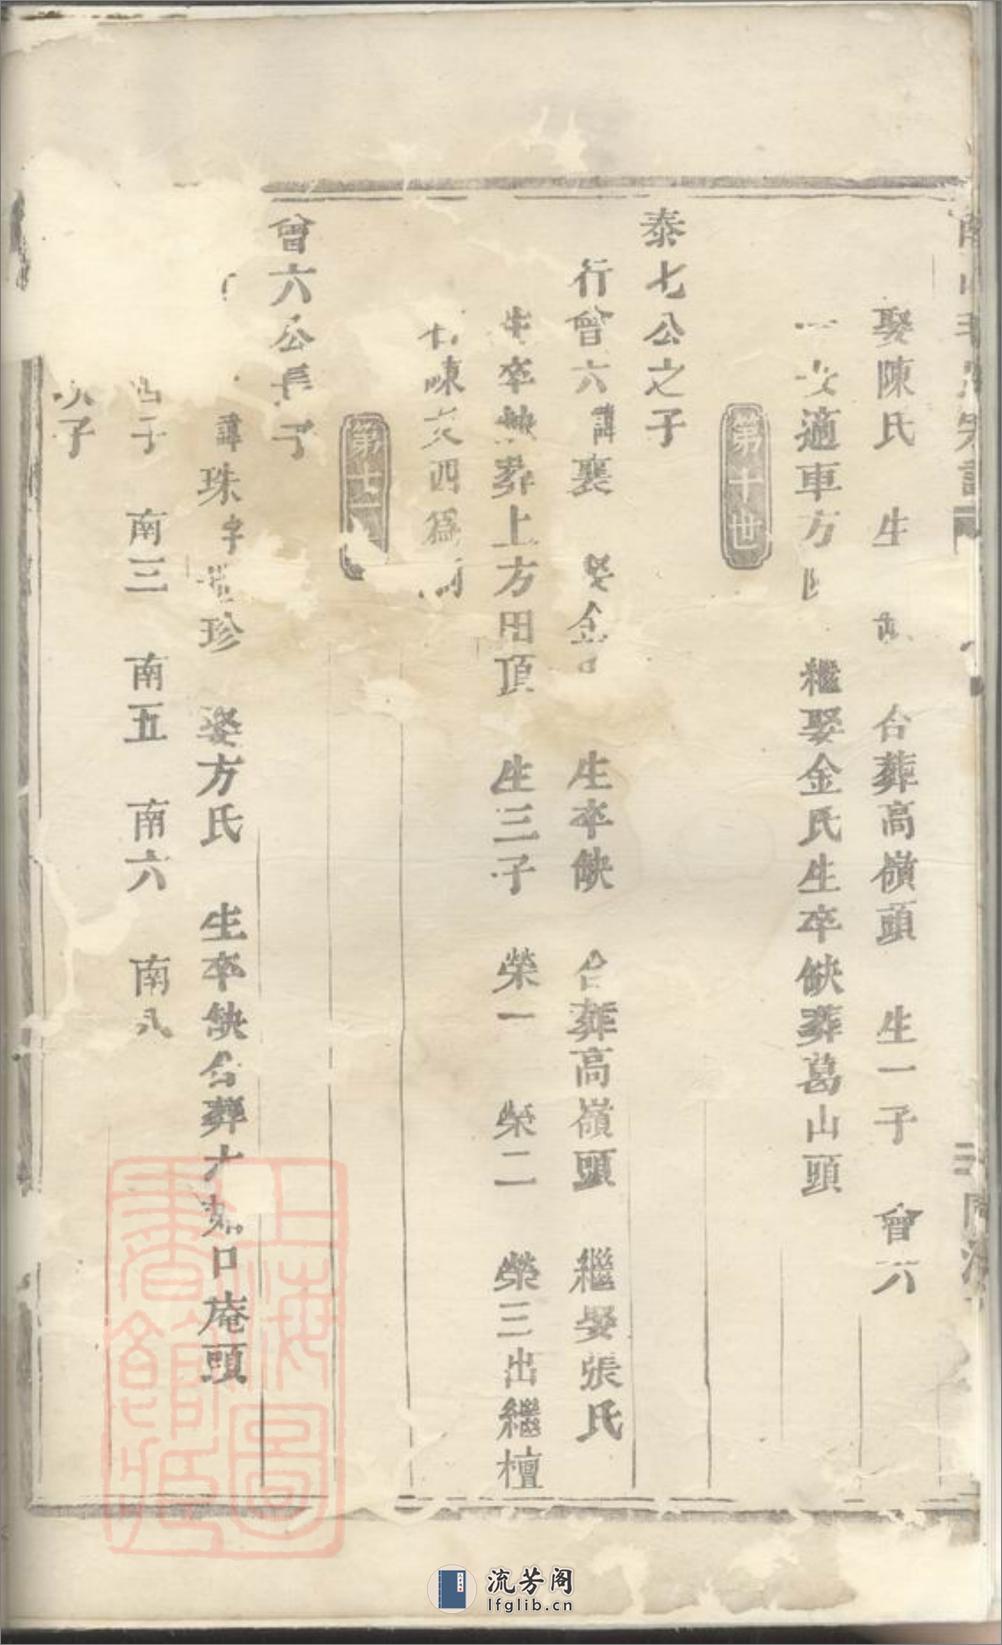 娶陳氏 生 合葬高嶺頭 生一子 曾六
一女適車方 繼娶金氏生卒缺葬葛山頭
第十世
泰七公之子
行曾六諱裏 娶金 生卒缺 合葬高嶺頭 繼娶張氏
生卒缺葬上方田頂 生三子 榮一 榮二 榮三出繼檀
陳文四爲
第十
曾六公長子
諱珠字 珍 娶方氏 生卒缺合葬 口庵頭
四子 南三 南五 南六 南八
次子
上海圖書館藏
流芳阁
lfglib.cn